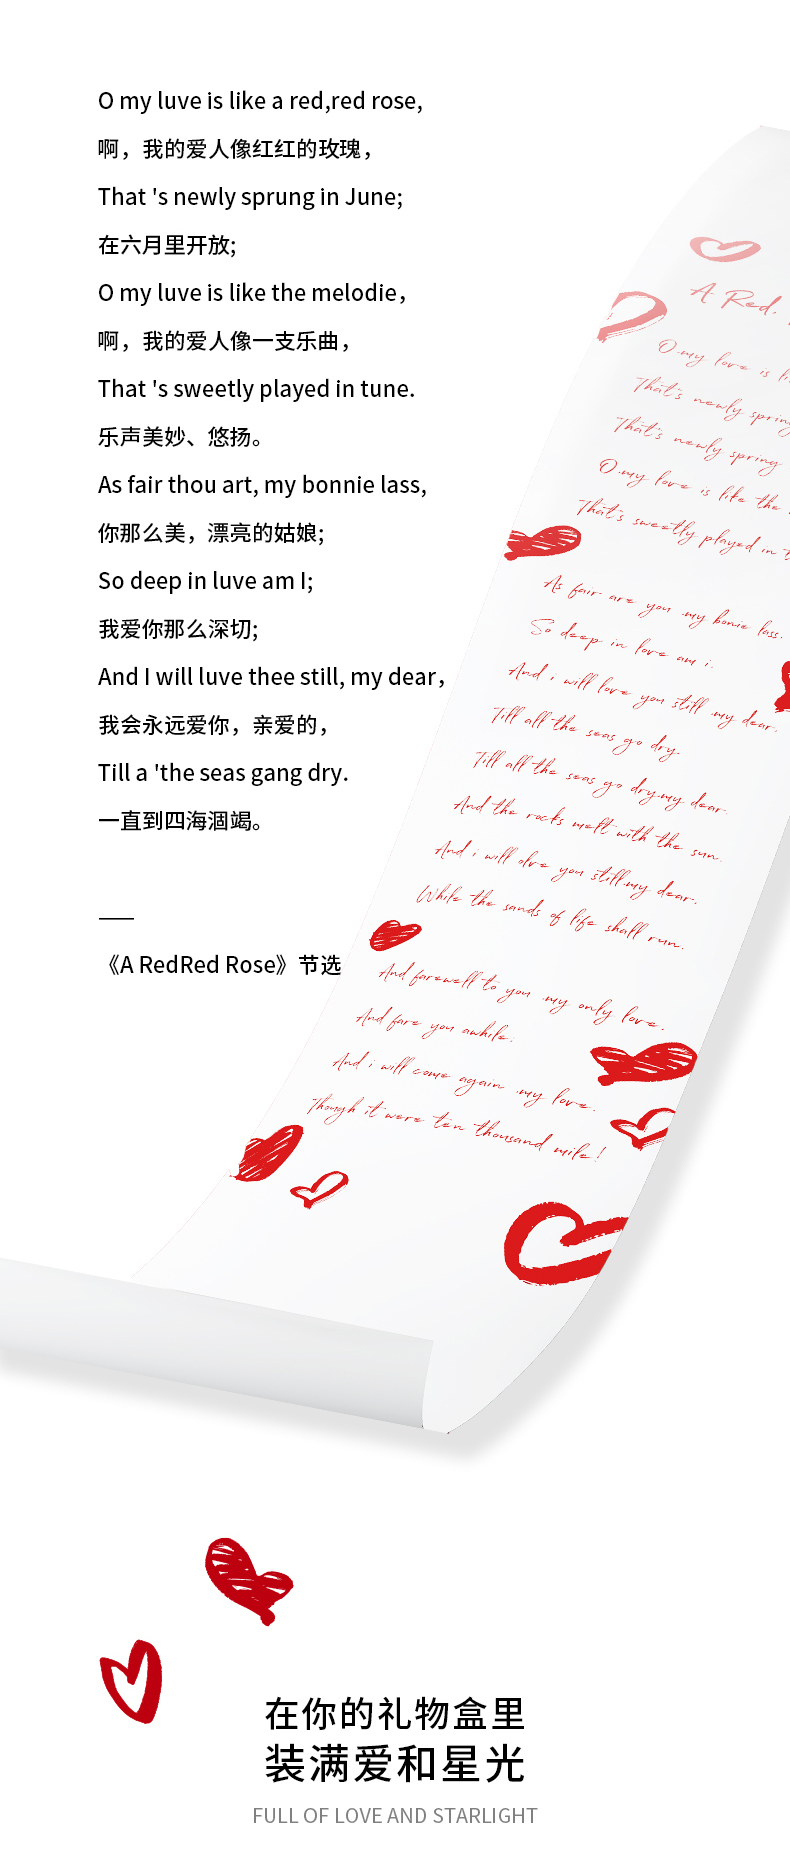 O my luve is like a red,red rose,
啊，我的爱人像红红的玫瑰，
That 's newly sprung in June;
在六月里开放;
O my luve is like the melodie，
啊，我的爱人像一支乐曲，
That 's sweetly played in tune.
乐声美妙、悠扬。
As fair thou art, my bonnie lass,
你那么美，漂亮的姑娘;
So deep in luve am I;
我爱你那么深切;
And I will luve thee still, my dear，
我会永远爱你，亲爱的，
Till a 'the seas gang dry.
一直到四海涸竭。
《A RedRed Rose》节选
A Red,
O my love is li
That's newly spring
That's newly spring
O my love is like the
That's sweetly played in t
As fair are you my bonie lass.
So deep in love am i.
And i will love you still my dear.
Till all the seas go dry.
Till all the seas go dry.my dear.
And the rocks melt with the sun.
And i will olve you still.my dear.
While the sands of life shall run.
And farewell to you my only love.
And fare you awhile.
And i will come again my love.
Though it were ten thousand mile!
在你的礼物盒里
装满爱和星光
FULL OF LOVE AND STARLIGHT